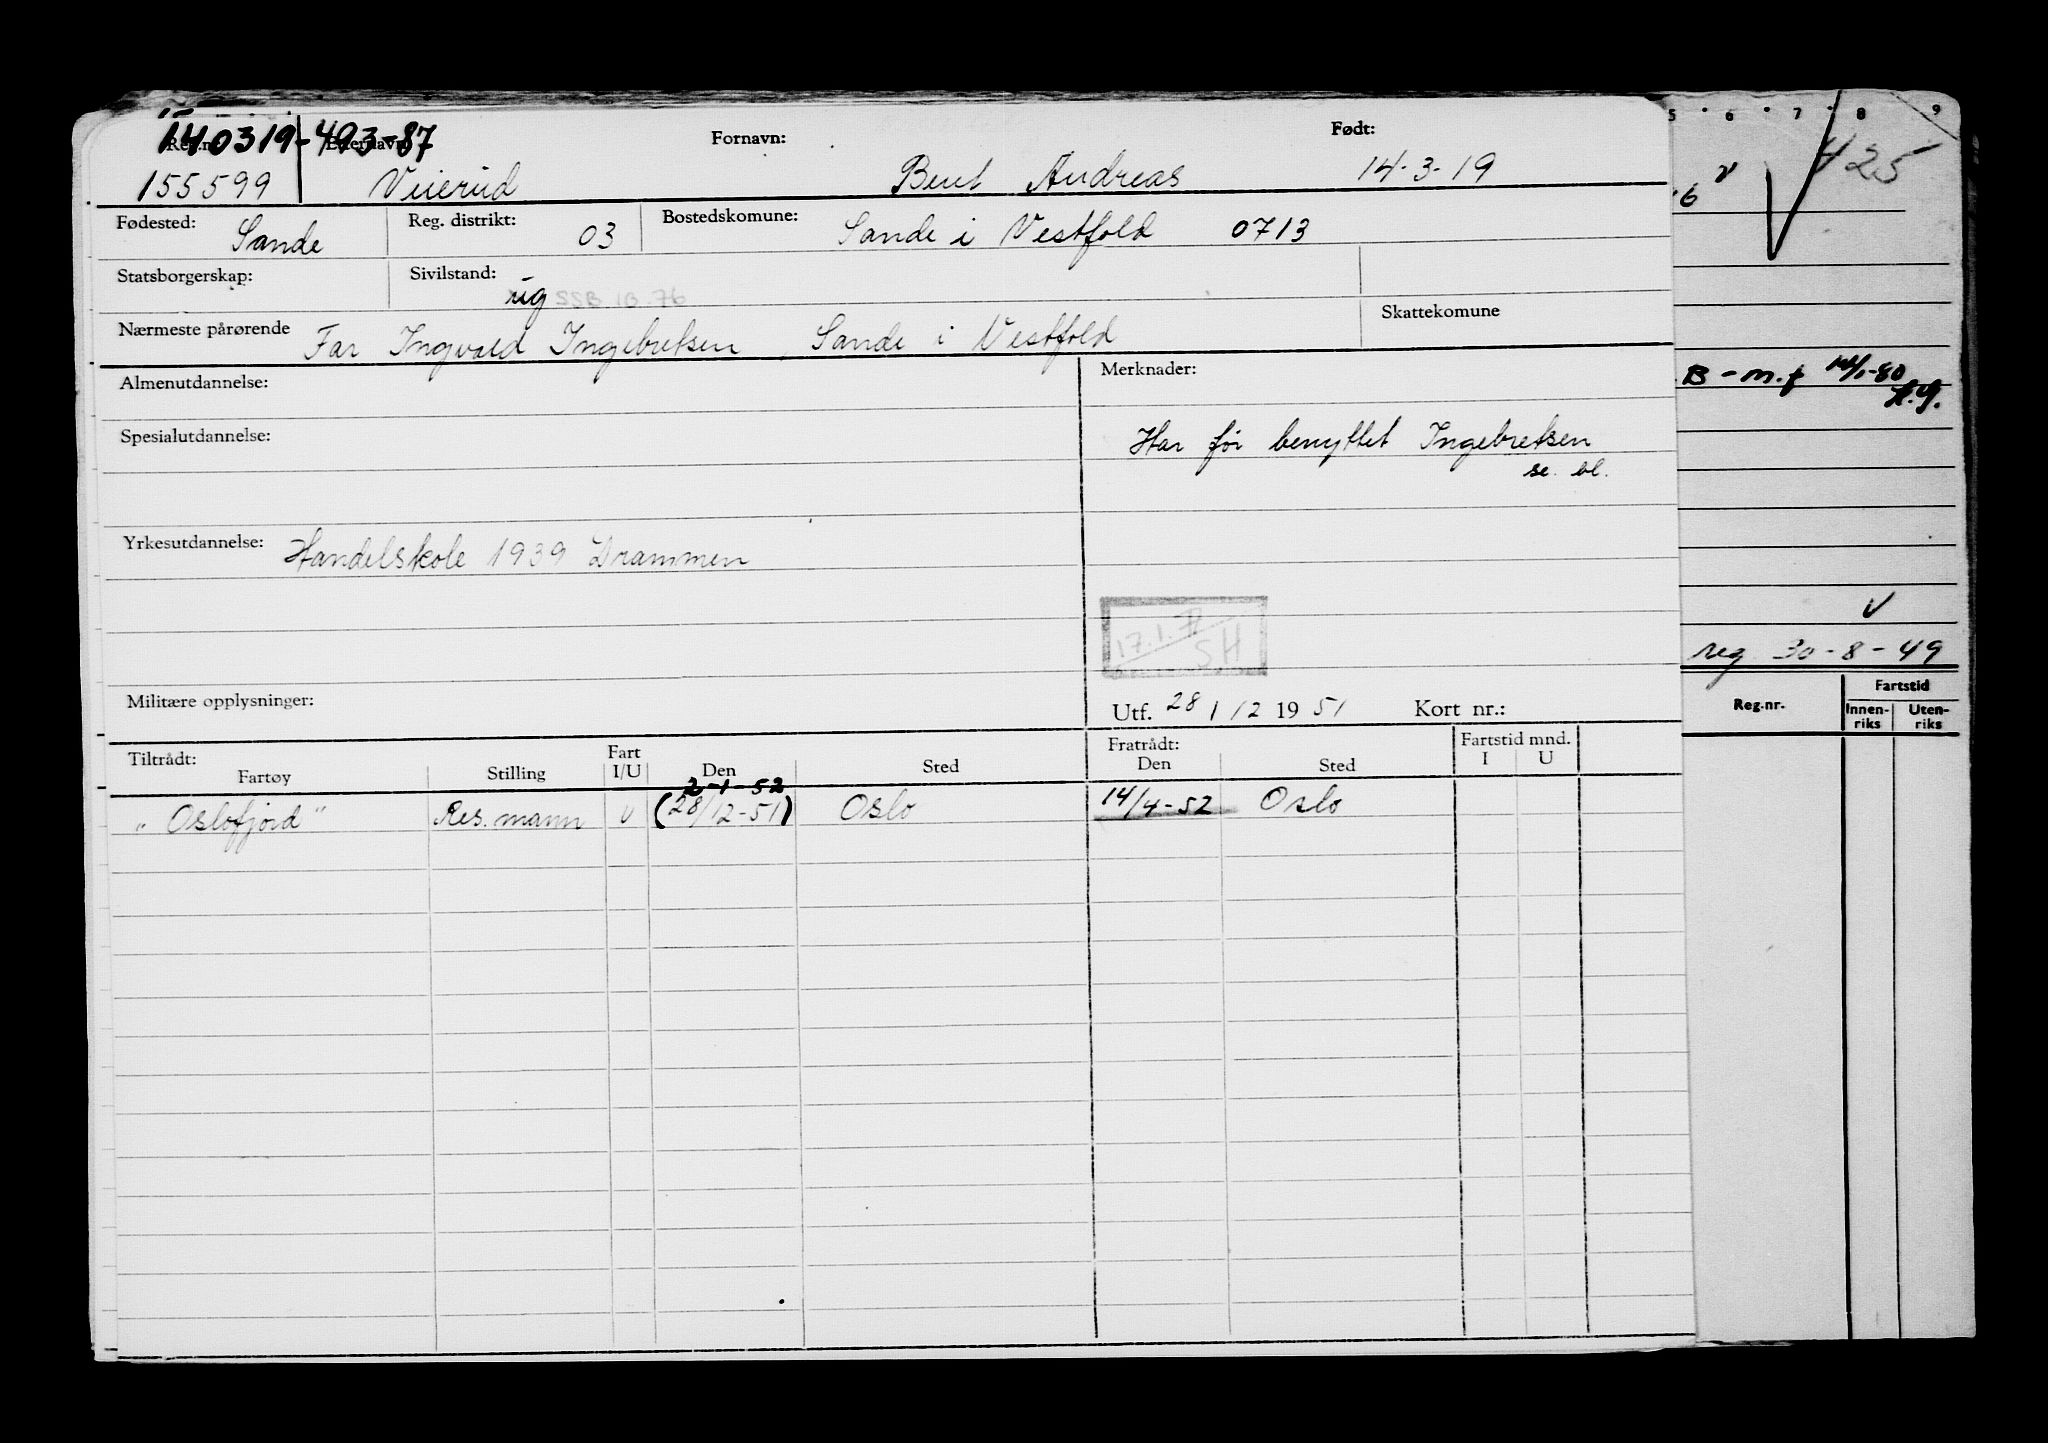 140319-493-87
Reg.nr. Etternavn: Fornavn: Født:
155599 Veierud Bent Andreas 14-3-19
Fødested: Sande Reg. distrikt: 03 Bostedskomune: Sande i Vestfold 0713
Statsborgerskap: Sivilstand: ug SSB 1B.76
Nærmeste pårørende Far Ingvald Ingebretsen, Sande i Vestfold Skattekomune
Almenutdannelse: Merknader:
Spesialutdannelse: Har før benyttet Ingebretsen
se. bl.
Yrkesutdannelse: Handelskole 1939 Drammen
17.1.77
SH
Militære opplysninger: Utf. 28 / 12 19 51 Kort nr.:
Tiltrådt: Fart Fratrådt: Fartstid mnd.
Fartøy Stilling I/U Den Sted Den Sted I U
2-1-52
"Oslofjord" Res. mann U (28/12-51) Oslo 14/4-52 Oslo
5 6 7 8 9
425
6 v
B - m.f 14/1-80
H.G.
V
reg 30-8-49
Reg.nr. Fartstid
Innen-riks Uten-riks